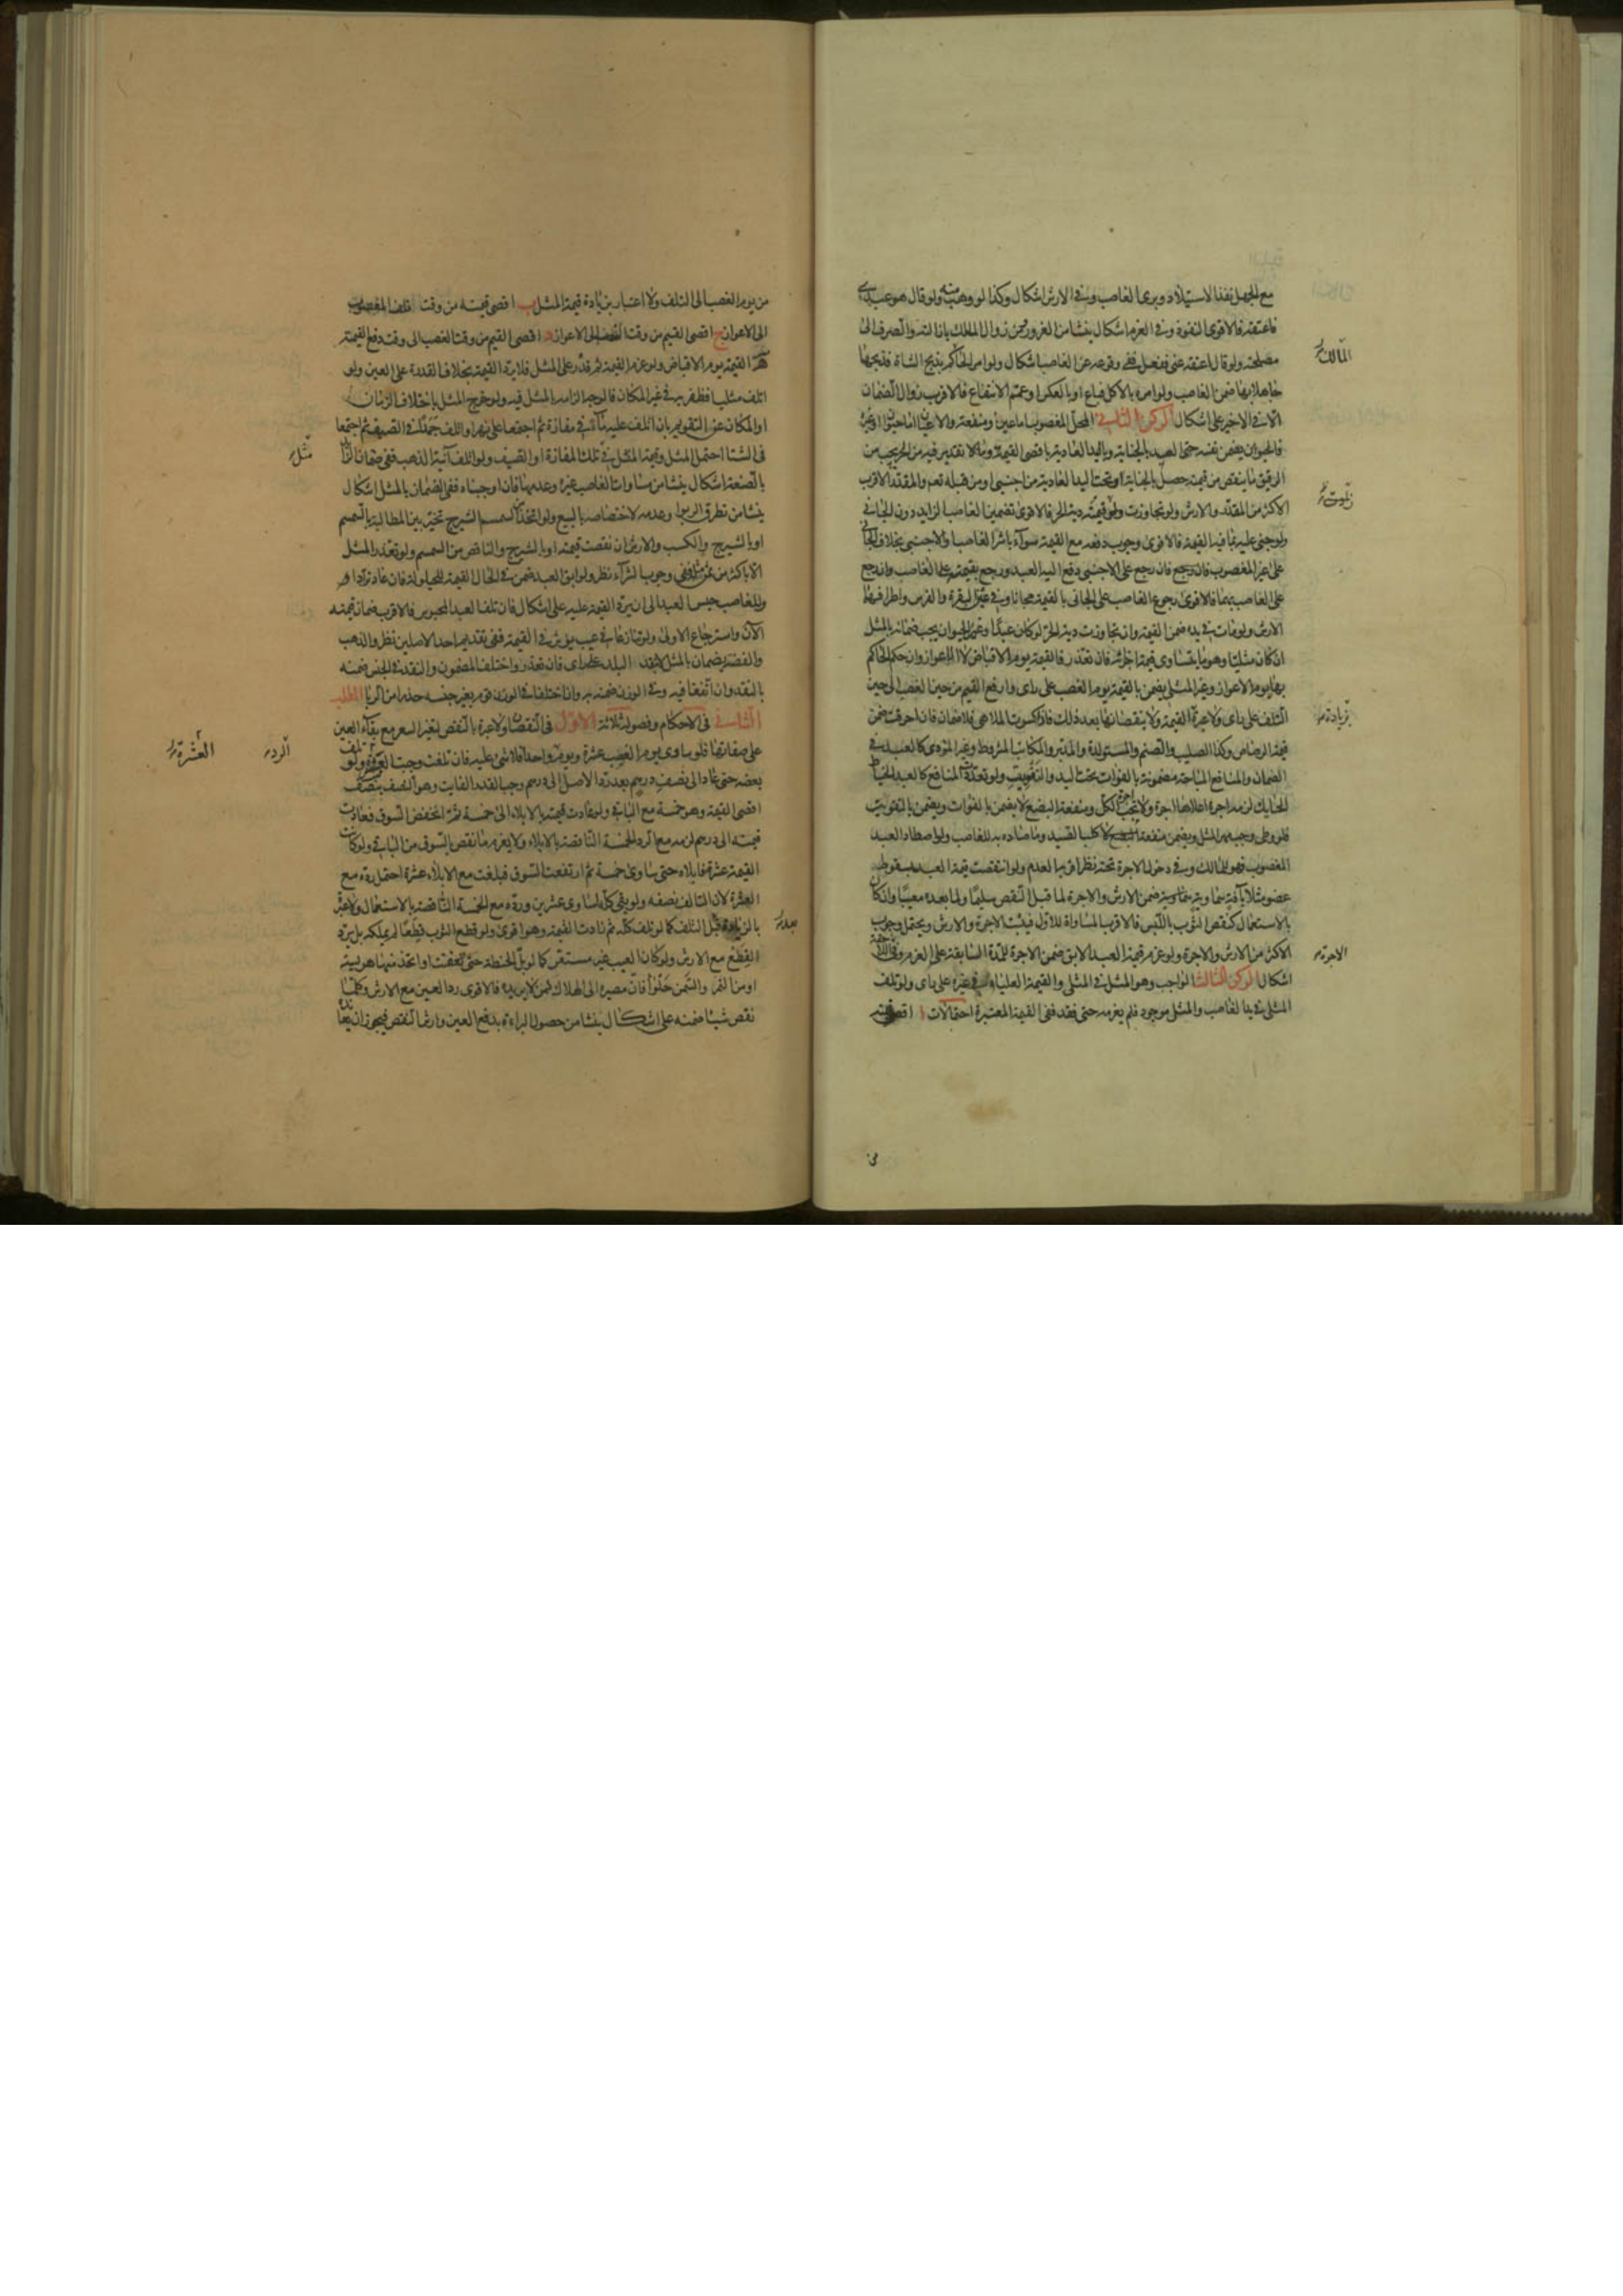 مع الجهل نفذ الاستيلاد وبرئ الغاصب وفي الارش اشكال وكذا لو وهبه منه ولو قال هو عبدي
فاعتقه فالاقوى النفوذ وفي الغرم اشكال ينشأ من الغرور ومن زوال الملك بازالته والصرف الى
مصلحته ولو قال اعتقه عني ففعل ففي وقوعه عن الغاصب اشكال ولو امر المالك بذبح الشاة فذبحها
جاهلا بها ضمن الغاصب ولو امره بالاكل فباع او بالعكس او عمم الانتفاع فالاقرب زوال الضمان
الا في الاخير على اشكال الركن الثاني المحل المغصوب اما عين او منفعة والاعيان اما حيوان او غيره
فالحيوان يضمن نفسه حتى العبد بالجناية وباليد العادية باقصى القيمة وما لا تقدير فيه من الحر يجب من
الرقيق ما ينقص من قيمته حصل بالجناية او تحت اليد العادية من اجنبي او من قبله تعم والمقدر الاقرب
الاكثر من المقدر والارش ولو تجاوزت قيمته دية الحر فالاقوى تضمين الغاصب الزايد دون الجاني
ولو جنى عليه بما فيه القيمة فالاقوى وجوب دفعه مع القيمة سواء باشر الغاصب او الاجنبي بخلاف الجاني
على غير المغصوب فان رجع على الاجنبي دفع اليه العبد ورجع بقيمته على الغاصب وان رجع
على الغاصب بهما فالاقوى رجوع الغاصب على الجاني بالقيمة مجانا وفي عين البقرة والفرس واطرافهما
الارش ولو مات في يده ضمن القيمة وان تجاوزت دية الحر لو كان عبدا وغير الحيوان يجب ضمانه بالمثل
ان كان مثليا وهو ما يتساوى قيمة اجزائه فان تعذر فالقيمة يوم الاقباض لا الاعواز وان حكم الحاكم
بها يوم الاعواز وغير المثلي يضمن بالقيمة يوم الغصب على راي وارفع القيم من حين الغصب الى حين
التلف على راي ولا عبرة القيمة ولا بنقصانها بعد ذلك فاذا كسرت الملاهي فلا ضمان فان احرقت ضمن
قيمة الرضاض وكذا الصليب والصنم والمستولدة والمدبر والمكاتب المشروط وغير المؤدي كالعبد في
الضمان والمنافع المباحة مضمونة بالفوات تحت اليد والتفويت ولو تعددت المنافع كالعبد الخياط
الحايك لزمه اجرة اعلاها اجرة ولا تجب اجرة الكل ومنفعة البضع لا يضمن بالفوات ويضمن بالتفويت
فلو وطئ وجب مهر المثل ويضمن منفعة كلب الصيد وما صاده به للغاصب ولو اصطاد العبد
المغصوب فهو للمالك وفي دخول الاجرة تحته نظر اقربها العدم ولو انتقصت قيمة العبد بسقوط
عضو مثلا بآفة سماوية ضمن الارش والاجرة لما قبل النقص سليما ولما بعده معيبا وان كان
بالاستعمال كنقص الثوب باللبس فالاقرب المساواة للاول فيثبت الاجرة والارش ويحتمل وجوب
الاكثر من الارش والاجرة ولو غرم قيمة العبد الابق ضمن الاجرة للمدة السابقة على الغرم وفي اللاحقة
اشكال الركن الثالث الواجب وهو المثل في المثلي والقيمة العليا في غيره على راي ولو تلف
المثلي في يد الغاصب والمثل موجود فلم يغرمه حتى فقد ففي القيمة المعتبرة احتمالات ا اقصى قيمته
المالك
زيادته
الاجرة
من يوم الغصب الى التلف ولا اعتبار بزيادة قيمة المثل ب اقصى قيمته من وقت تلف المغصوب
الى الاعواز ج اقصى القيم من وقت الغصب الى الاعواز د اقصى القيم من وقت الغصب الى وقت دفع القيمة
القيمة يوم الاقباض ولو غرم القيمة ثم قدر على المثل فلا يرد القيمة بخلاف القدرة على العين ولو
اتلف مثليا فظفر به في غير المكان فالوجه الزامه بالمثل فيه ولو خرج المثل باختلاف الزمان
او المكان عن التقويم بان اتلف عليه ماء في مفازة ثم اجتمعا على نهر او اتلف جمدا في الصيف ثم اجتمعا
في الشتا احتمل المثل وقيمة المثل في تلك المفازة او الصيف ولو اتلف آنية الذهب ففي ضمان الزايد
بالصنعة اشكال ينشأ من مساواة الغاصب غيره وعدمها فان اوجبناه ففي الضمان بالمثل اشكال
ينشأ من تطرق الربوا وعدمه لاختصاصه بالبيع ولو اتخذ من السمسم الشيرج تخير بين المطالبة بالسمسم
او بالشيرج والكسب والارش ان نقصت قيمته او بالشيرج والناقص من السمسم ولو تعذر المثل
الا باكثر من ثمن مثله ففي وجوب الشراء نظر ولو ابق العبد ضمن في الحال القيمة للحيلولة فان عاد ترادا
وللغاصب حبس العبد الى ان يرد القيمة عليه على اشكال فان تلف العبد المحبوس فالاقرب ضمان قيمته
الآن واسترجاع الاولى ولو تنازعا في عيب يؤثر في القيمة ففي تقديم احد الاصلين نظر والذهب
والفضة يضمان بالمثل لا بنقد البلد على راي فان تعذر واختلف المضمون والنقد في الجنس ضمنه
بالنقد وان اتفقا فيه وفي الوزن ضمنه به وان اختلفا في الوزن قوم بغير جنسه حذرا من الربا المطلب
الثاني في الاحكام وفصوله ثلاثة الاول في النقصان ولا عبرة بالنقص لتغير السعر مع بقاء العين
على صفاتها فلو ساوى يوم الغصب عشرة ويوم الرد واحدا فلا شئ عليه فان تلفت وجبت العشرة ولو تلف
بعضه حتى عاد الى نصف درهم بعد رد الاصل الى درهم وجب القدر الفايت وهو النصف بنصف
اقصى القيمة وهو خمسة مع الباقي ولو عادت قيمته بالابلاء الى خمسة ثم انخفض السوق فعادت
قيمته الى درهم لزمه مع الرد الخمسة الناقصة بالابلاء ولا يغرم ما نقص بالسوق من الباقي ولو كانت
القيمة عشرة فابلاه حتى ساوى خمسة ثم ارتفعت السوق فبلغت مع الابلاء عشرة احتمل رده مع
العشرة لان التالف نصفه ولو بقي كله لساوى عشرين ورده مع الخمسة الناقصة بالاستعمال ولا عبرة
بالزيادة قبل التلف كما لو تلف كله ثم زادت القيمة وهو اقوى ولو قطع الثوب قطعا لم يملكه بل يرد
القطع مع الارش ولو كان العيب غير مستقر كما لو بل الحنطة حتى تعفنت او اتخذ منها هريسة
او من التمر والسمن حلواء فان مصيره الى الهلاك لمن لا يريده فالاقوى رد العين مع الارش وكلما
نقص شيئا ضمنه على اشكال ينشأ من حصول البراءة بدفع العين وارش النقص فيجوز ان يعاند
مثل
الرد
العشرة
بعد